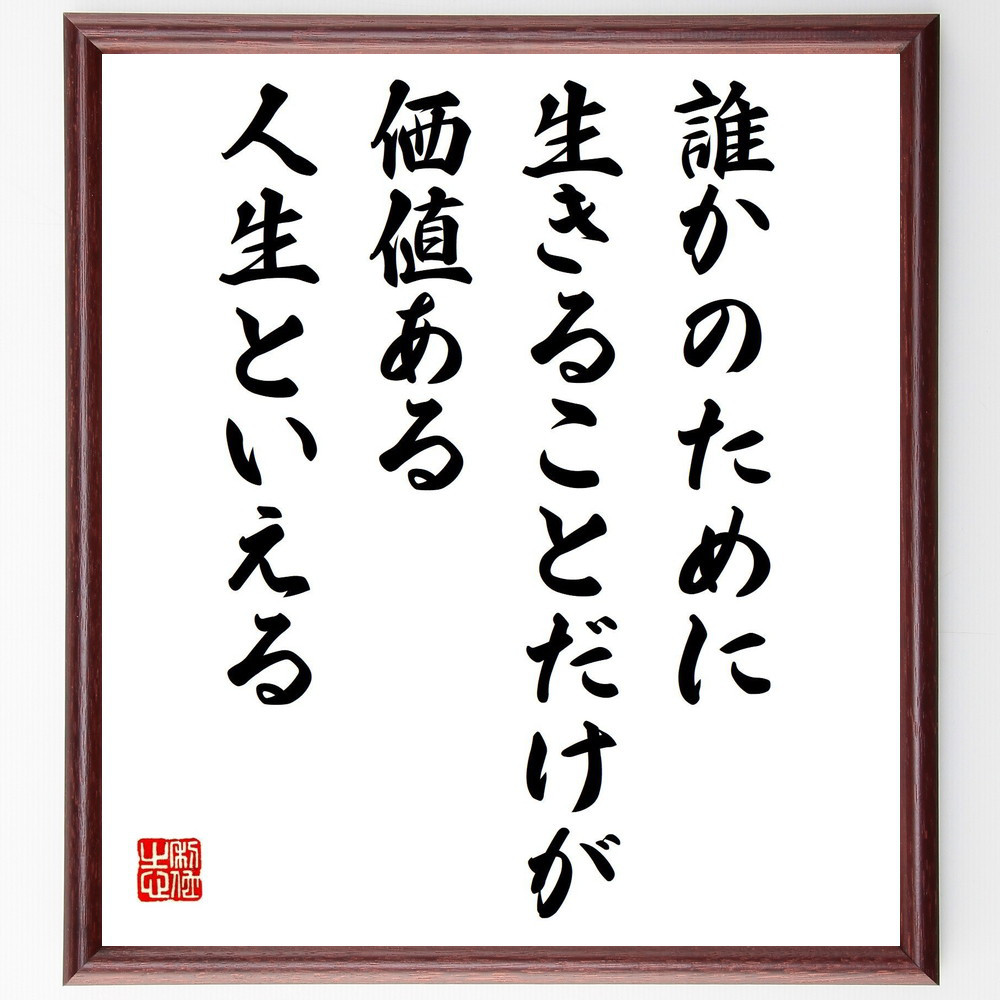 誰かのために
生きることだけが
価値ある
人生といえる